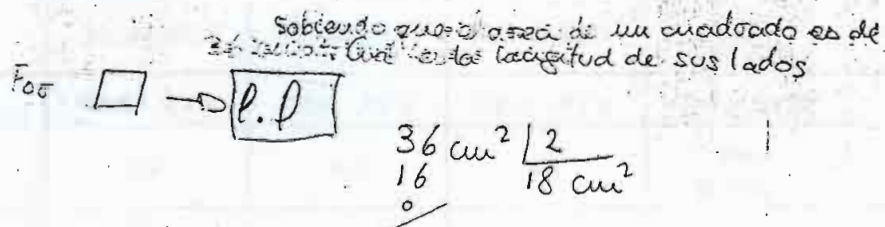 Sabiendo que el area de un cuadrado es de
longitud de sus lados
l.l
36 cm² 2
16 18 cm²
0